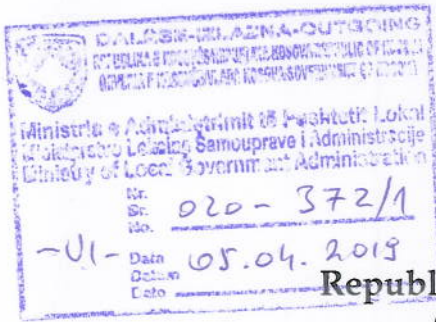 DALËSE-IZLAZNA-OUTGOING
Ministria e Administrimit të Pushtetit Lokal
Ministarstvo Lokalne Samouprave i Administracije
Ministry of Local Government Administration
Nr.
Br.
No.
020-372/1
-VI-
Data
Datum
Date
05.04.2019
Republ